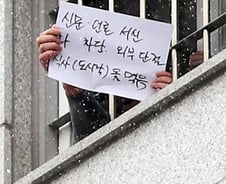 신문 언론 서신
차단 외부 단절
식사 (도시락) 못 먹음